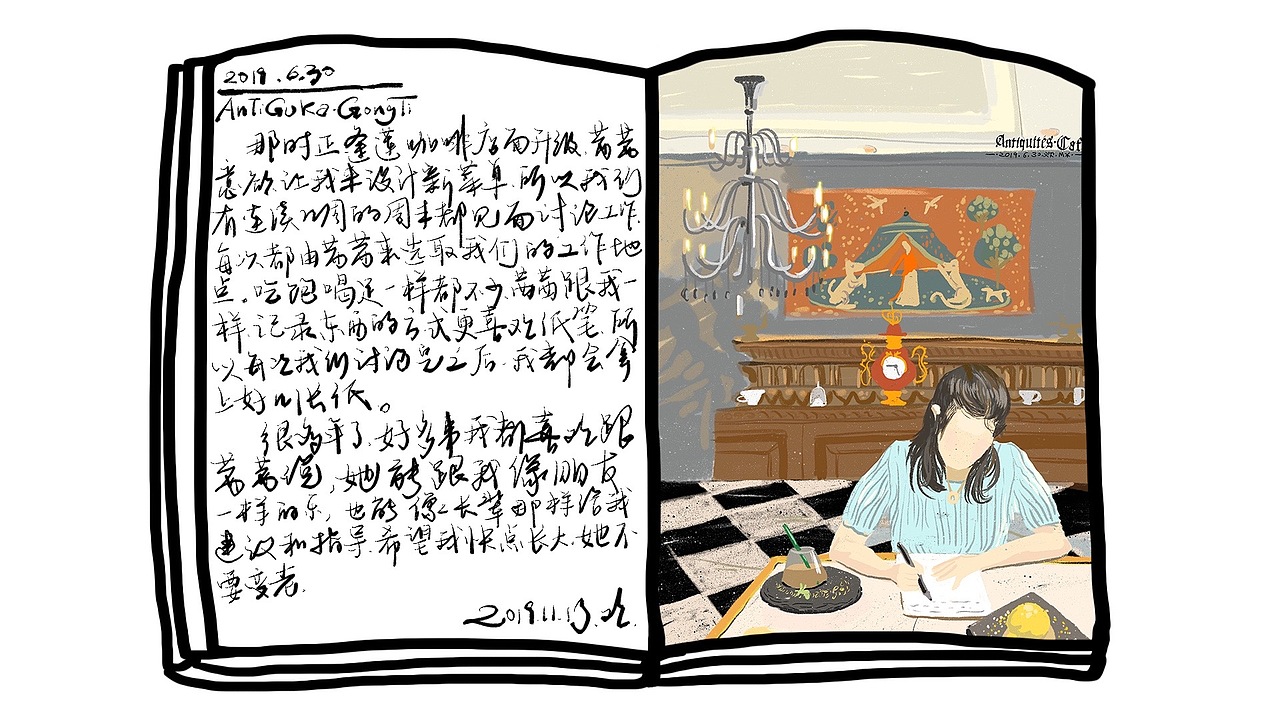 2019.6.30
AnTiGuKa·GongTi
那时正逢莲咖啡店面升级.茜茜
意欲让我来设计新菜单.所以我们
有连续几周的周末都见面讨论工作.
每次都由茜茜来选取我们的工作地
点。吃跑喝逛一样都不少茜茜跟我一
样.记录东西的方式更喜欢纸笔.所
以每次我们讨论完之后.我都会拿
上好几张纸。
很多年了.好多事我都喜欢跟
茜茜说,她能跟我像朋友
一样的乐,也能像个长辈那样给我
建议和指导.希望我快点长大.她不
要变老.
2019.11.13.
Antiquités·Caf
2019.6.30